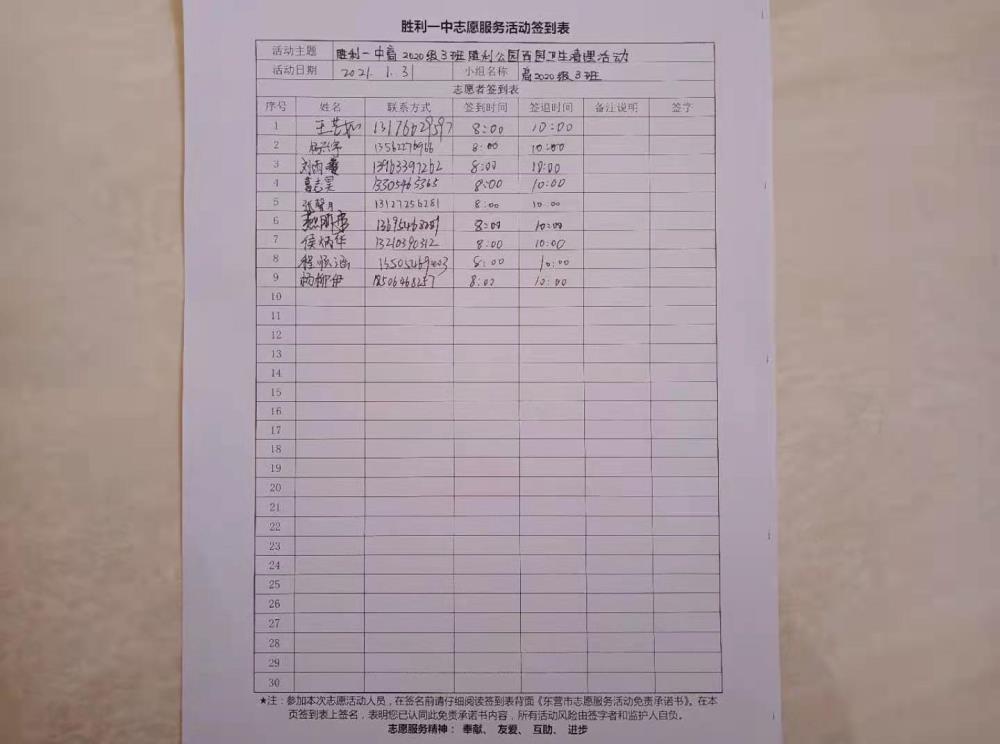 胜利一中志愿服务活动签到表
活动主题 胜利一中高2020级3班胜利公园西园卫生清理活动
活动日期 2021.1.31 小组名称 高2020级3班
志愿者签到表
序号 姓名 联系方式 签到时间 签退时间 备注说明 签字
1 王芸如 13176629597 8:00 10:00
2 13562276966 8:00 10:00
3 刘雨 13963397262 8:00 10:00
4 葛志昊 13305465365 8:00 10:00
5 张馨月 13127256281 8:00 10:00
6 8:00 10:00
7 侯炳华 13210390312 8:00 10:00
8 程 涵 8:00 10:00
9 杨柳伊 18506468257 8:00 10:00
10
11
12
13
14
15
16
17
18
19
20
21
22
23
24
25
26
27
28
29
30
★注：参加本次志愿活动人员，在签名前请仔细阅读签到表背面《东营市志愿服务活动免责承诺书》。在本
页签到表上签名，表明您已认同此免责承诺书内容，所有活动风险由签字者和监护人自负。
志愿服务精神： 奉献、 友爱、 互助、 进步